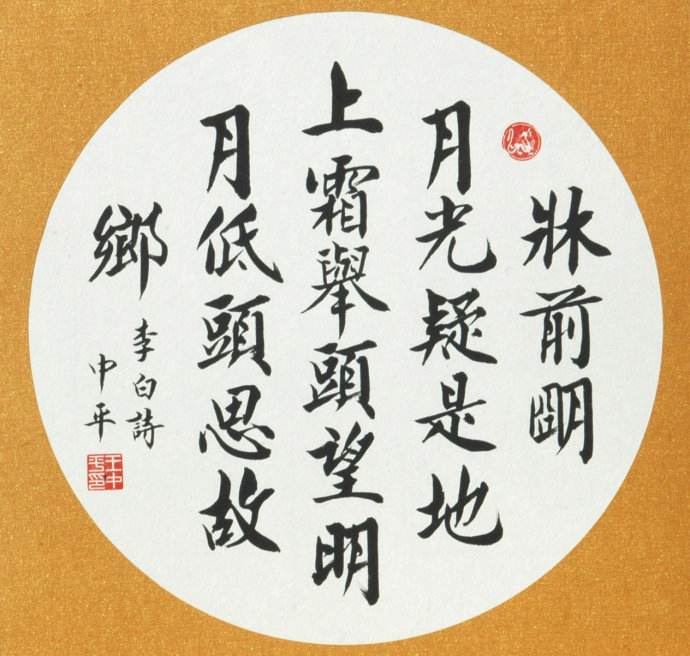 牀前明
月光疑是地
上霜舉頭望明
月低頭思故
鄉
李白詩
中平
王中
平印